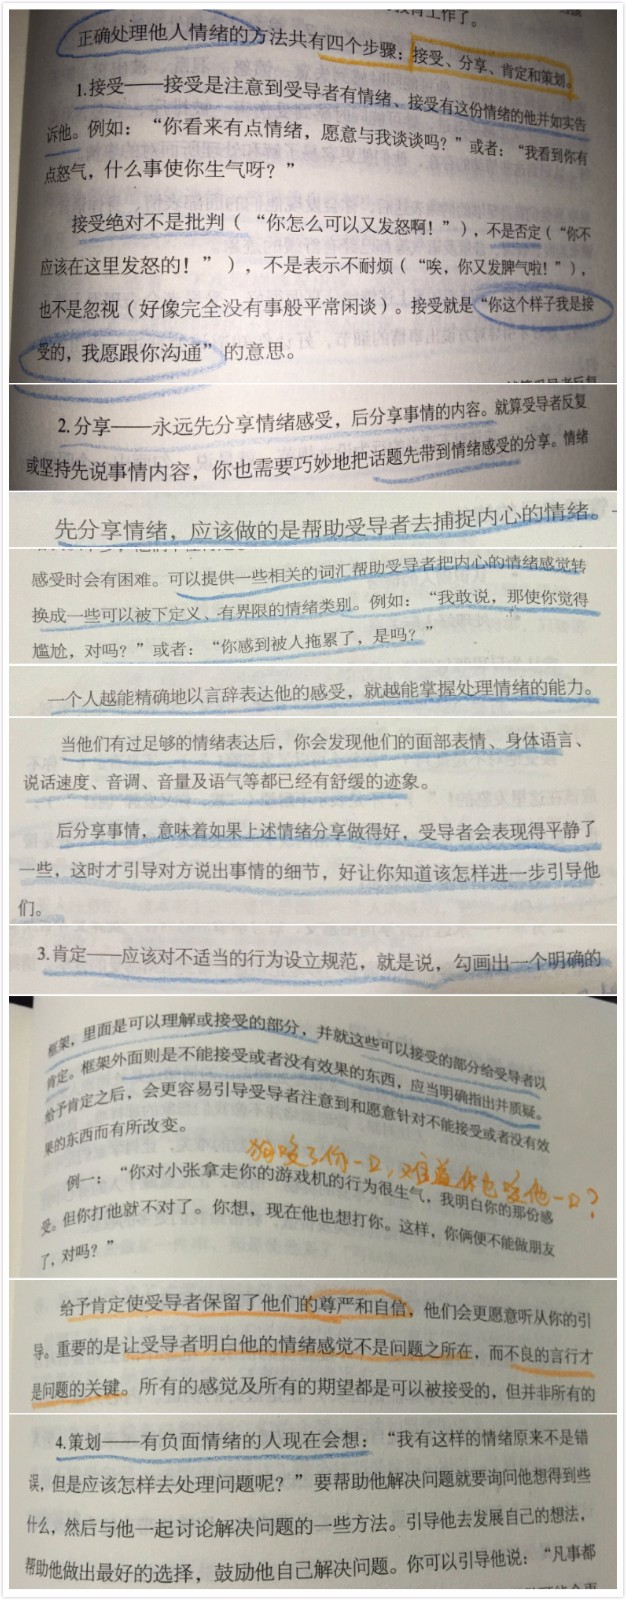 教育工作了。
正确处理他人情绪的方法共有四个步骤：接受、分享、肯定和策划。
1.接受——接受是注意到受导者有情绪、接受有这份情绪的他并如实告
诉他。例如：“你看来有点情绪，愿意与我谈谈吗？”或者：“我看到你有
点怒气，什么事使你生气呀？”
接受绝对不是批判（“你怎么可以又发怒啊！”），不是否定（“你不
应该在这里发怒的！”），不是表示不耐烦（“唉，你又发脾气啦！”），
也不是忽视（好像完全没有事般平常闲谈）。接受就是“你这个样子我是接
受的，我愿跟你沟通”的意思。
2.分享——永远先分享情绪感受，后分享事情的内容。就算受导者反复
或坚持先说事情内容，你也需要巧妙地把话题先带到情绪感受的分享。情绪
先分享情绪，应该做的是帮助受导者去捕捉内心的情绪。
感受时会有困难。可以提供一些相关的词汇帮助受导者把内心的情绪感觉转
换成一些可以被下定义、有界限的情绪类别。例如：“我敢说，那使你觉得
尴尬，对吗？”或者：“你感到被人拖累了，是吗？”
一个人越能精确地以言辞表达他的感受，就越能掌握处理情绪的能力。
当他们有过足够的情绪表达后，你会发现他们的面部表情、身体语言、
说话速度、音调、音量及语气等都已经有舒缓的迹象。
后分享事情，意味着如果上述情绪分享做得好，受导者会表现得平静了
一些，这时才引导对方说出事情的细节，好让你知道该怎样进一步引导他
们。
3.肯定——应该对不适当的行为设立规范，就是说，勾画出一个明确的
框架，里面是可以理解或接受的部分，并就这些可以接受的部分给受导者以
肯定。框架外面则是不能接受或者没有效果的东西，应当明确指出并质疑。
给予肯定之后，会更容易引导受导者注意到和愿意针对不能接受或者没有效
果的东西而有所改变。
狗咬了你一口，难道你也咬他一口？
例一：“你对小张拿走你的游戏机的行为很生气，我明白你的那份感
受。但你打他就不对了。你想，现在他也想打你。这样，你俩便不能做朋友
了，对吗？”
给予肯定使受导者保留了他们的尊严和自信，他们会更愿意听从你的引
导。重要的是让受导者明白他的情绪感觉不是问题之所在，而不良的言行才
是问题的关键。所有的感觉及所有的期望都是可以被接受的，但并非所有的
4.策划——有负面情绪的人现在会想：“我有这样的情绪原来不是错
误，但是应该怎样去处理问题呢？”要帮助他解决问题就要询问他想得到些
什么，然后与他一起讨论解决问题的一些方法。引导他去发展自己的想法，
帮助他做出最好的选择，鼓励他自己解决问题。你可以引导他说：“凡事都